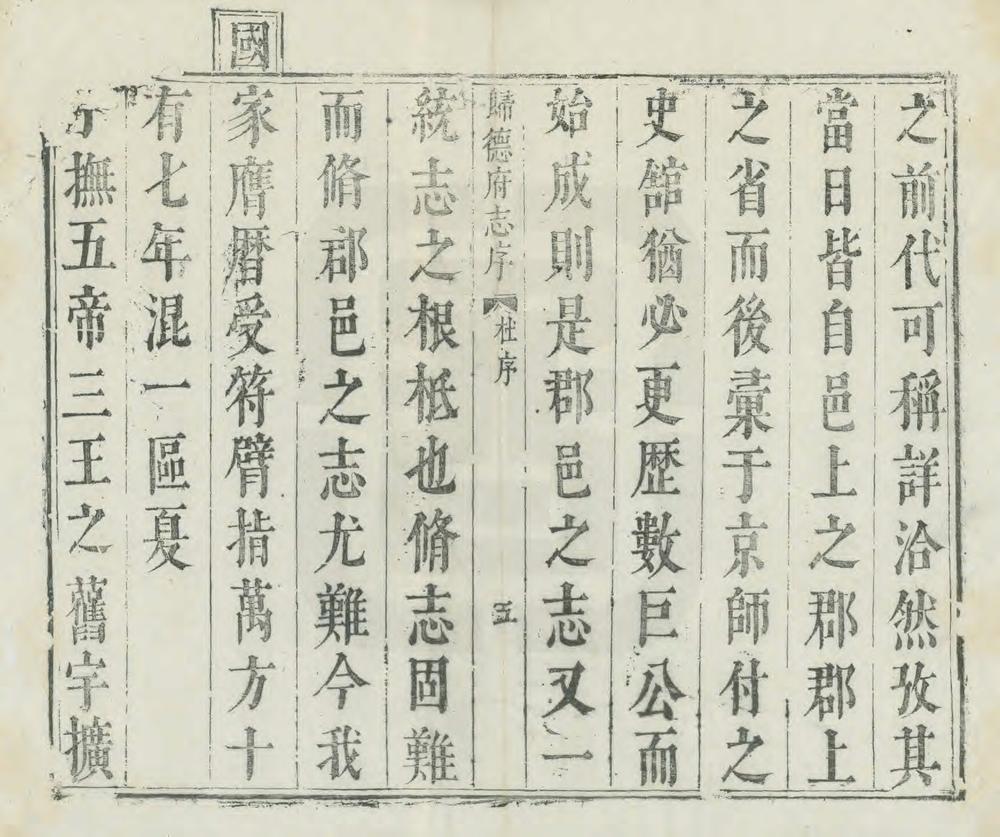 之前代可稱詳洽然攷其
當日皆自邑上之郡郡上
之省而後彙于京師付之
史舘猶必更歷數巨公而
始成則是郡邑之志又一
歸德府志序 杜序 五
統志之根柢也脩志固難
而脩郡邑之志尤難今我
國
家膺曆受符臂指萬方十
有七年混一區夏
撫五帝三王之舊宇擴